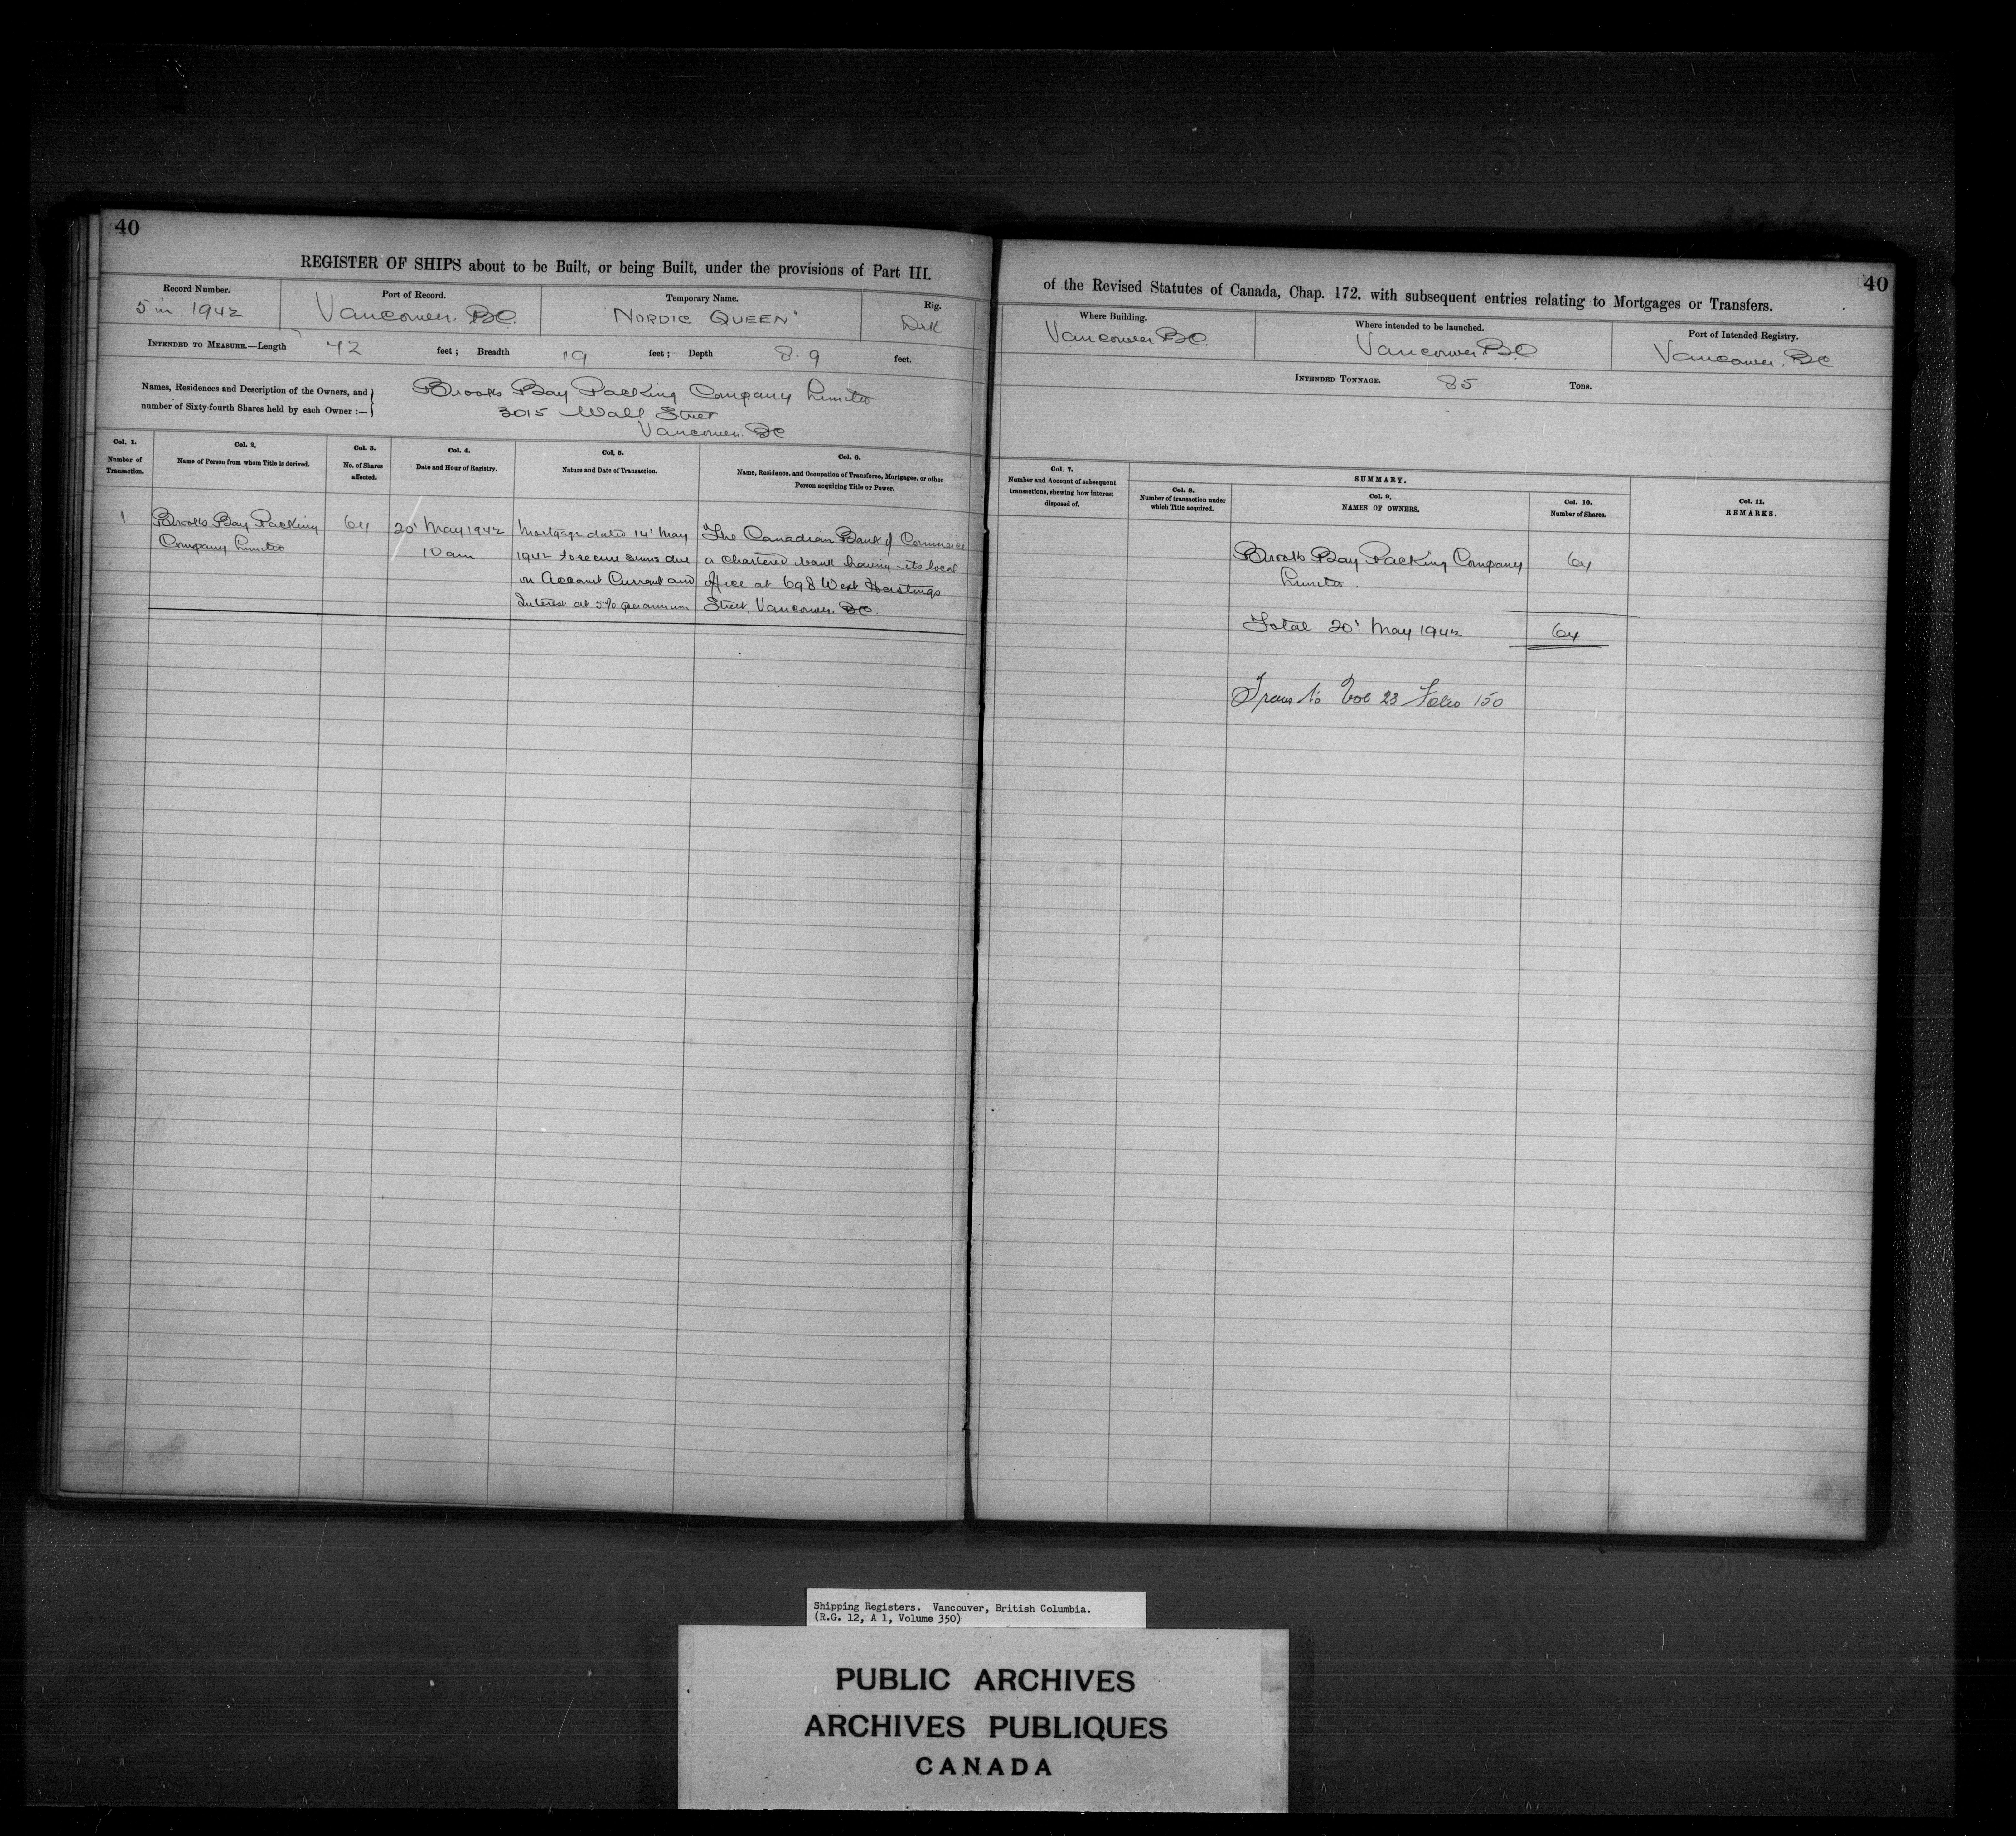 40
REGISTER OF SHIPS about to be Built, or being Built, under the provisions of Part III.
Record Number.
5 in 1942
Port of Record.
Vancouver. BC.
Temporary Name.
"NORDIC QUEEN"
Rig.
INTENDED TO MEASURE.—Length 72 feet; Breadth 19 feet; Depth 8.9 feet.
Names, Residences and Description of the Owners, and
number of Sixty-fourth Shares held by each Owner :—
Brooks Bay Packing Company Limited
3015 Wall Street
Vancouver. BC
Col. 1.
Number of
Transaction.
Col. 2,
Name of Person from whom Title is derived.
Col. 3.
No. of Shares
affected.
Col. 4.
Date and Hour of Registry.
Col. 5.
Nature and Date of Transaction.
Col. 6.
Name, Residence, and Occupation of Transferee, Mortgagee, or other
Person acquiring Title or Power.
1
Brooks Bay Packing
Company Limited
64
20' May 1942
10 am
Mortgage dated 14' May
1942 to secure sums due
on Account Current and
Interest at 5% per annum
The Canadian Bank of Commerce
a chartered bank having its local
office at 698 West Hastings
Street, Vancouver. BC.
40
of the Revised Statutes of Canada, Chap. 172. with subsequent entries relating to Mortgages or Transfers.
Where Building.
Vancouver BC.
Where intended to be launched.
Vancouver B.C
Port of Intended Registry.
Vancouver. BC
INTENDED TONNAGE. 85 Tons.
Col. 7.
Number and Account of subsequent
transactions, shewing how interest
disposed of.
SUMMARY.
Col. 8.
Number of transaction under
which Title acquired.
Col. 9,
NAMES OF OWNERS.
Col. 10.
Number of Shares.
Col. 11.
REMARKS.
Brooks Bay Packing Company 64
Limited.
Total 20' May 1942 64
Trans to Vol 23 Folio 150
Shipping Registers. Vancouver, British Columbia.
(R.G. 12, A 1, Volume 350)
PUBLIC ARCHIVES
ARCHIVES PUBLIQUES
CANADA